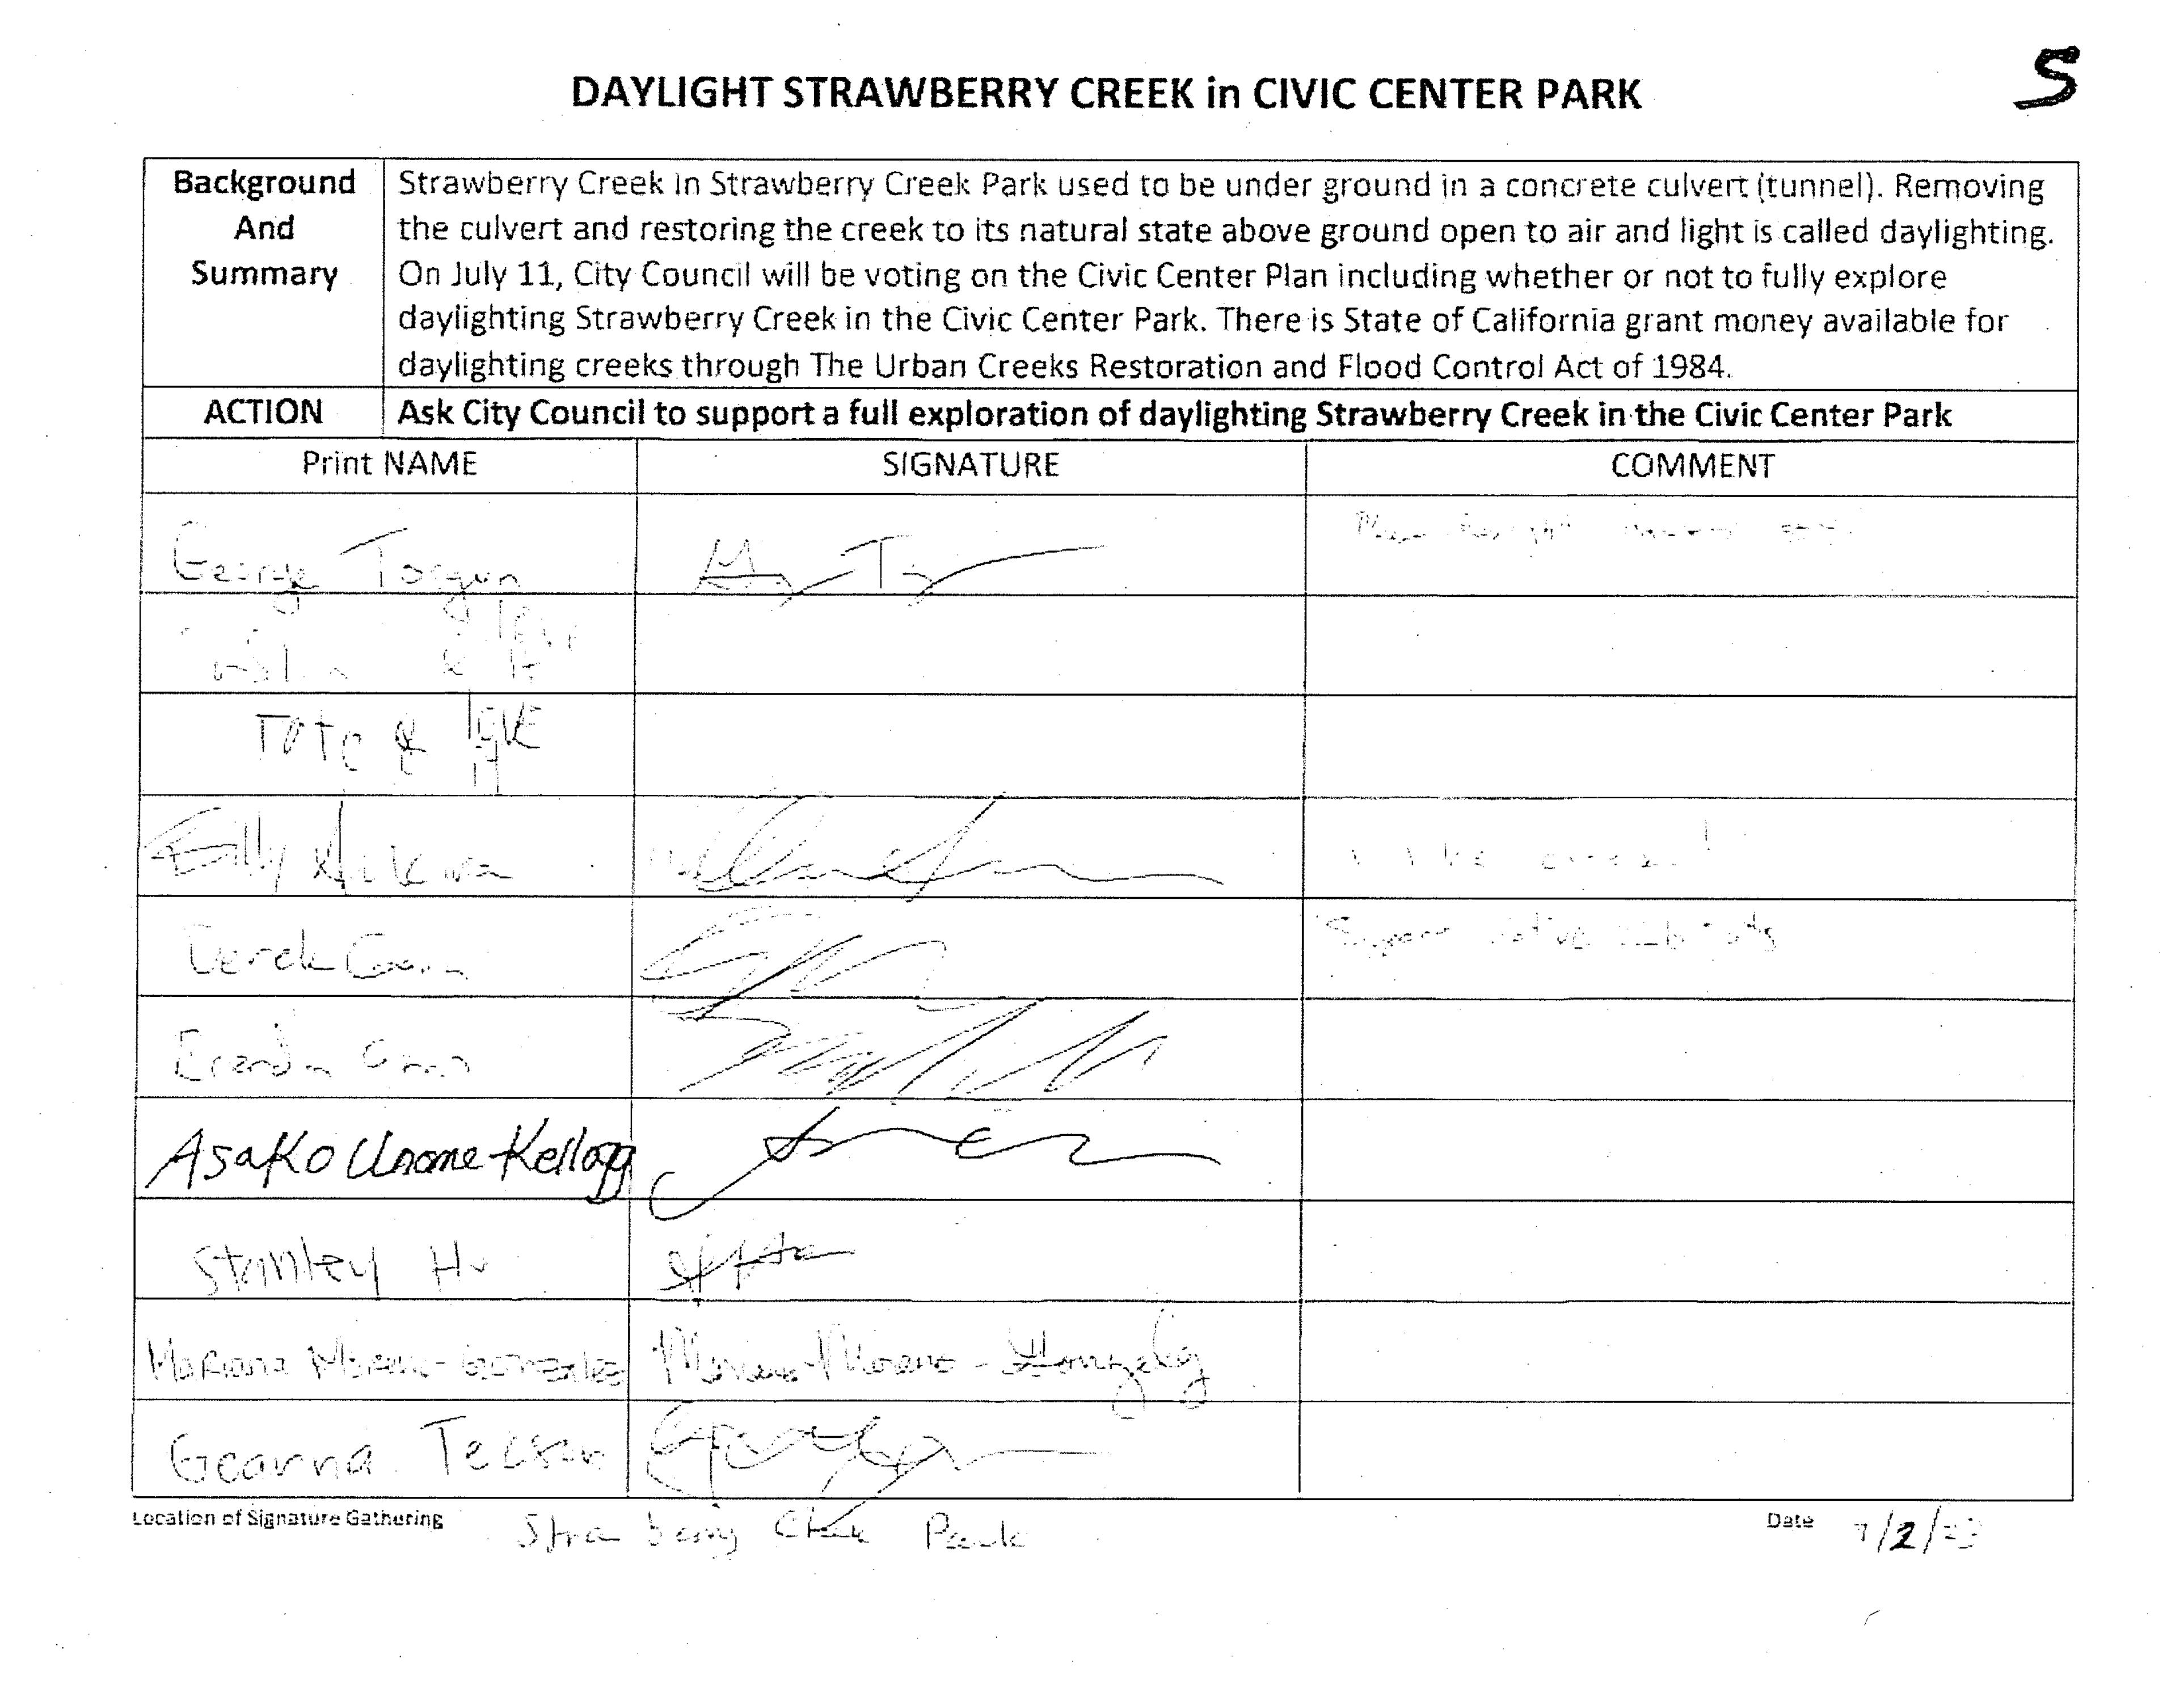 DAYLIGHT STRAWBERRY CREEK in CIVIC CENTER PARK
5
Background And Summary
Strawberry Creek in Strawberry Creek Park used to be under ground in a concrete culvert (tunnel). Removing
the culvert and restoring the creek to its natural state above ground open to air and light is called daylighting.
On July 11, City Council will be voting on the Civic Center Plan including whether or not to fully explore
daylighting Strawberry Creek in the Civic Center Park. There is State of California grant money available for
daylighting creeks through The Urban Creeks Restoration and Flood Control Act of 1984.
ACTION
Ask City Council to support a full exploration of daylighting Strawberry Creek in the Civic Center Park
Print NAME SIGNATURE COMMENT
George Torgun
Derek
Support native
Asako Unome-Kellogg
Stanley Hu
Mariana Moreno-Gonzalez Mariana Moreno-Gonzalez
Geanna Tecson
Location of Signature Gathering Strawberry Creek Park Date 7/2/23